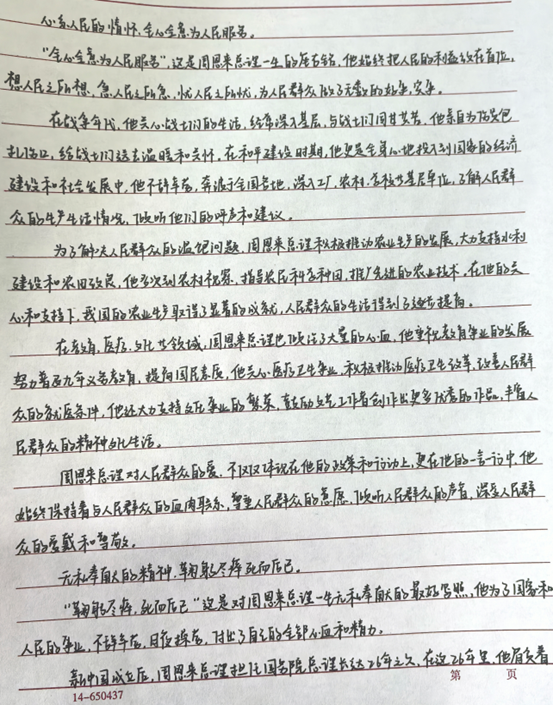 心系人民的情怀,全心全意为人民服务。
“全心全意为人民服务”,这是周恩来总理一生的座右铭,他始终把人民的利益放在首位,
想人民之所想,急人民之所急,忧人民之所忧,为人民群众做了无数的好事、实事。
在战争年代,他关心战士们的生活,经常深入基层,与战士们同甘共苦,他亲自为伤员包
扎伤口,给战士们送去温暖和关怀。在和平建设时期,他更是全身心地投入到国家的经济
建设和社会发展中,他不辞辛劳,奔波于全国各地,深入工厂、农村、学校等基层单位,了解人民群
众的生产生活情况,倾听他们的呼声和建议。
为了解决人民群众的温饱问题,周恩来总理积极推动农业生产的发展,大力支持水利
建设和农田改良,他多次到农村视察,指导农民科学种田,推广先进的农业技术,在他的关
心和支持下,我国的农业生产取得了显著的成就,人民群众的生活得到了逐步提高。
在教育、医疗、文化等领域,周恩来总理也倾注了大量的心血,他重视教育事业的发展
努力普及九年义务教育,提高国民素质,他关心医疗卫生事业,积极推动医疗卫生改革,改善人民群
众的就医条件,他还大力支持文化事业的繁荣,鼓励文艺工作者创作出更多优秀的作品,丰富人
民群众的精神文化生活。
周恩来总理对人民群众的爱,不仅仅体现在他的政策和行动上,更在他的一言一行中,他
始终保持着与人民群众的血肉联系,尊重人民群众的意愿,倾听人民群众的声音,深受人民群
众的爱戴和尊敬。
无私奉献的精神,鞠躬尽瘁死而后已。
“鞠躬尽瘁,死而后已”这是对周恩来总理一生无私奉献的最好写照,他为了国家和
人民的事业,不辞辛劳,日夜操劳,付出了自己的全部心血和精力。
新中国成立后,周恩来总理担任国务院总理长达26年之久,在这26年里,他肩负着
14-650437
第 页